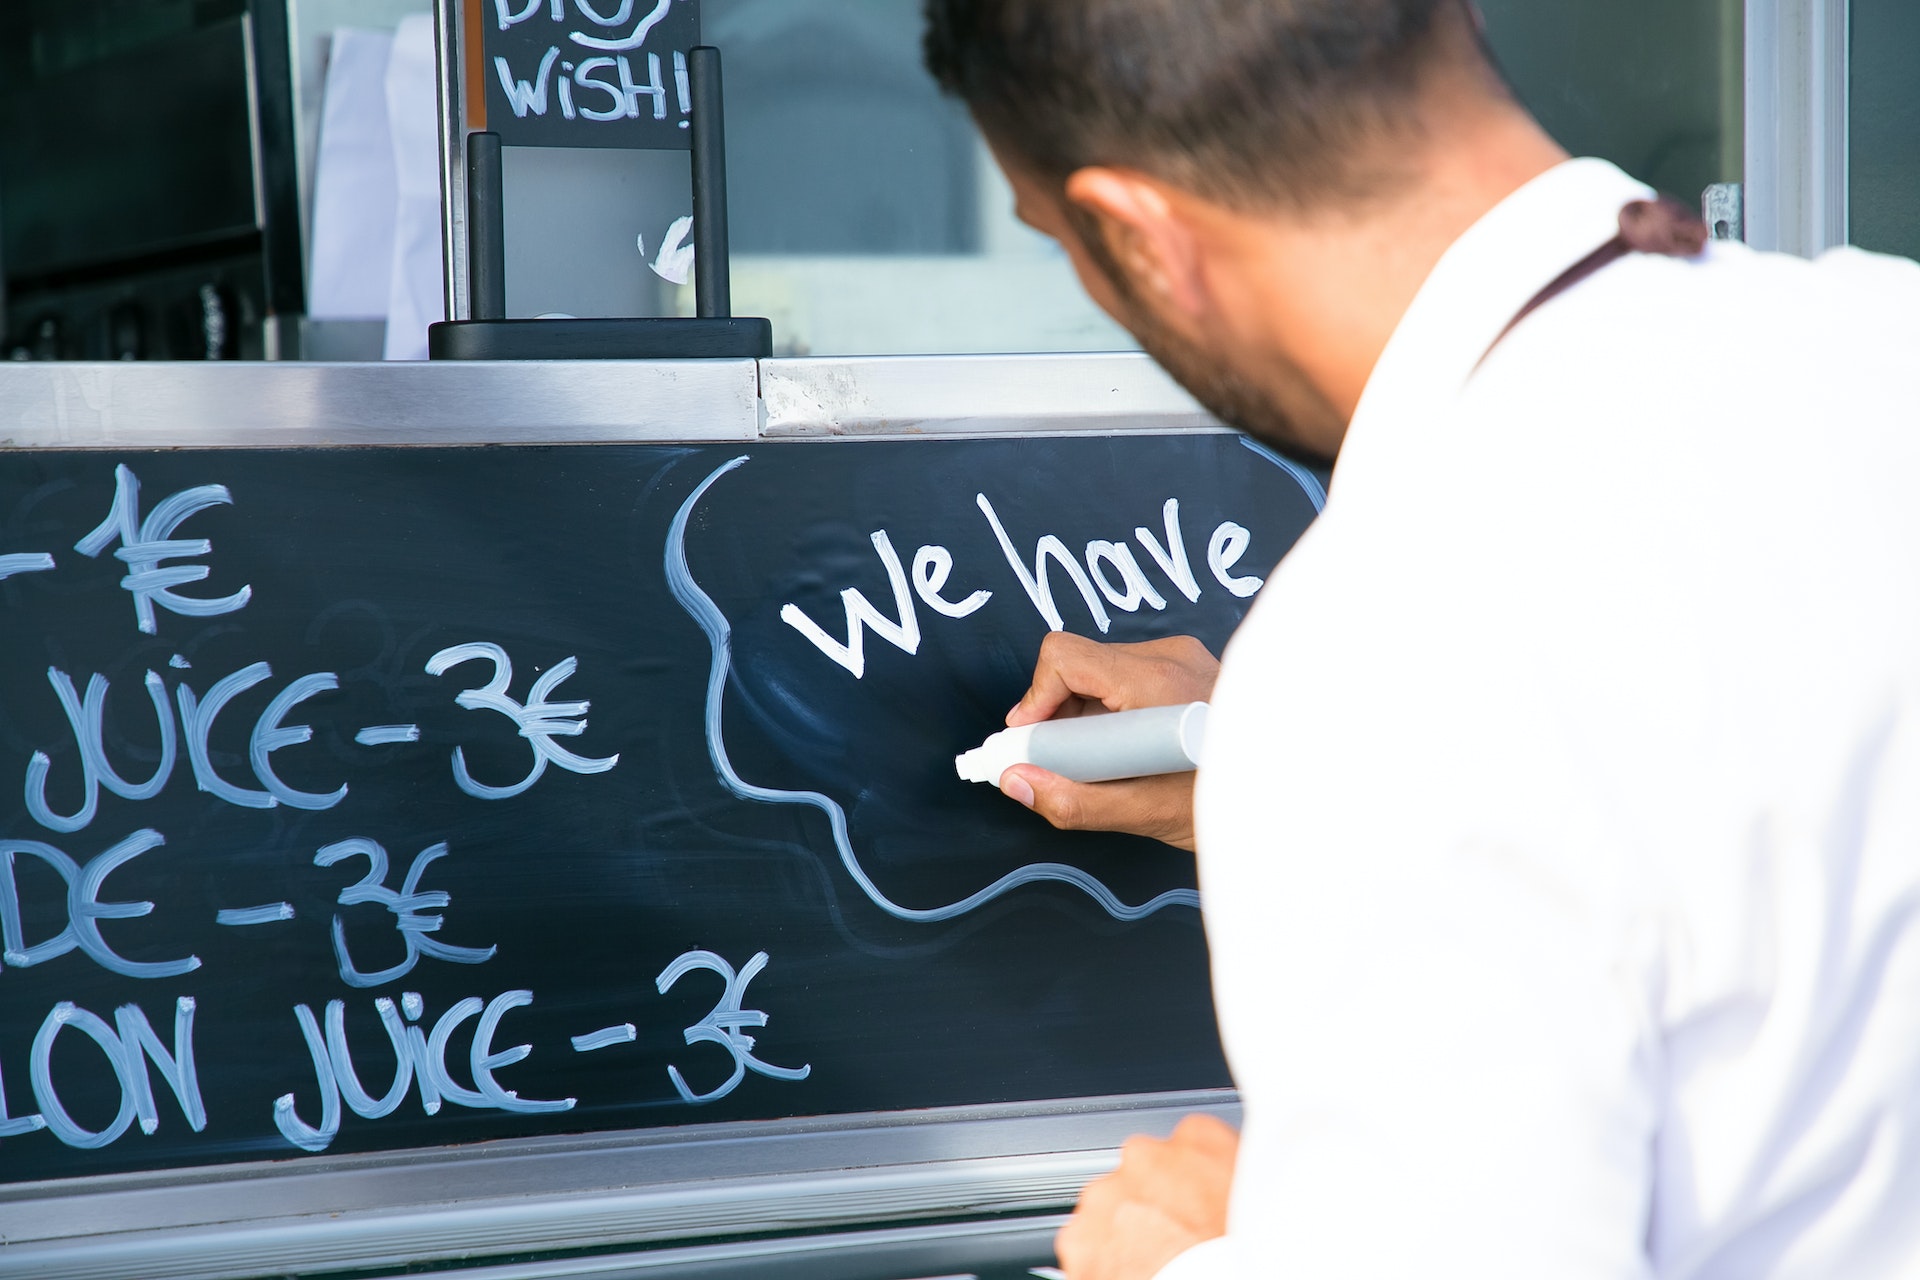 WiSH!
- 1€
JUiCE - 3€
DE - 3€
LON JUiCE - 3€
We have